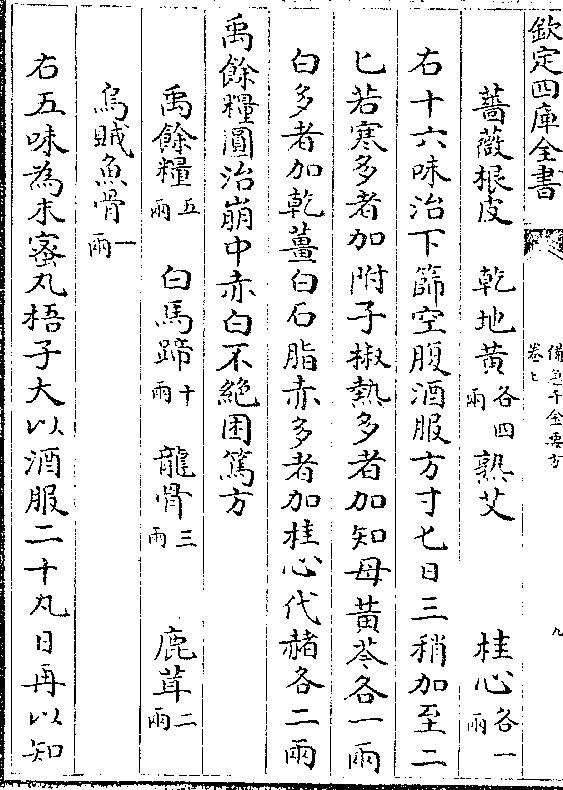 欽定四庫全書
備急千金要方
卷七
九
薔薇根皮 乾地黃各四兩 熟艾 桂心各一兩
右十六味治下篩空腹酒服方寸七日三稍加至二
匕若寒多者加附子椒熱多者加知母黃芩各一兩
白多者加乾薑白石脂赤多者加桂心代赭各二兩
禹餘糧圓治崩中赤白不絕困篤方
禹餘糧五兩 白馬蹄十兩 龍骨三兩 鹿茸二兩
烏賊魚骨一兩
右五味為末蜜丸梧子大以酒服二十丸日再以知